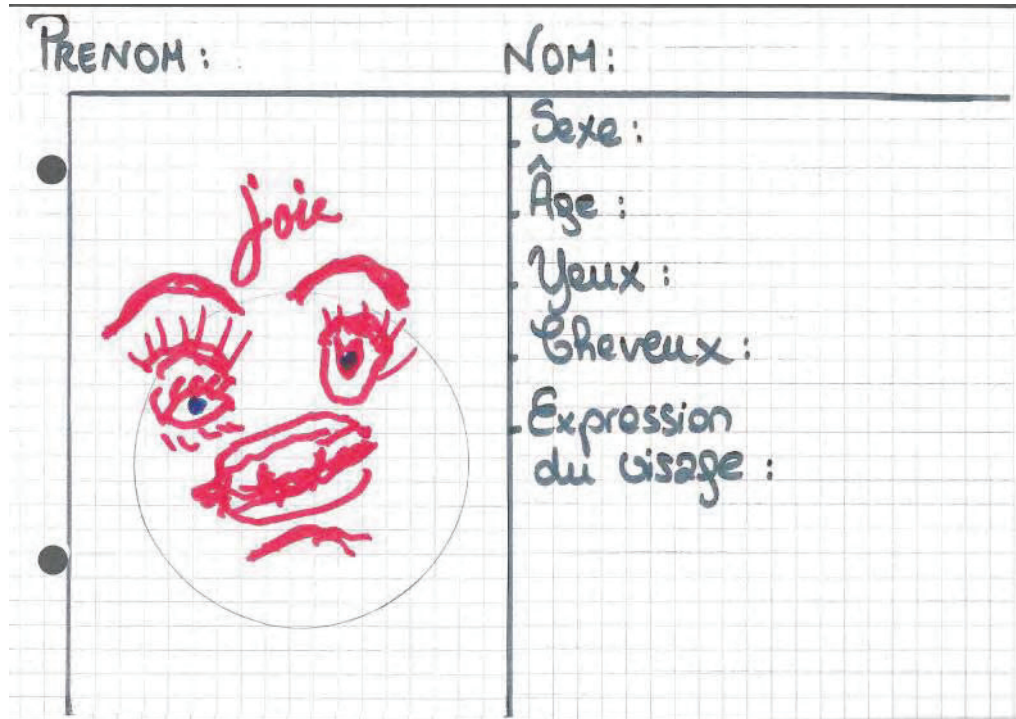 PRENOM : NOM :
joie
Sexe :
Âge :
Yeux :
Cheveux :
Expression
du visage :